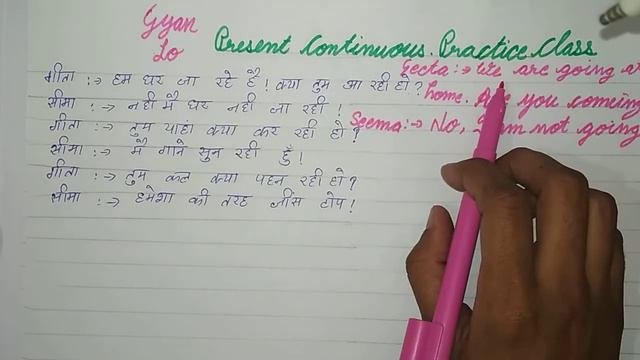 Gyan
Lo
Present Continuous Practice Class
गीता :→ हम घर जा रहे हैं! क्या तुम आ रही हो?
सीमा :→ नही मै घर नही जा रही!
गीता :→ तुम यहां क्या कर रही हो?
सीमा :→ मै गाने सुन रही हुँ!
गीता :→ तुम कल क्या पहन रही हो?
सीमा :→ हमेशा की तरह जींस टोप!
Geeta :→ We are going at
home. Are you coming
Seema :→ No, I am not going